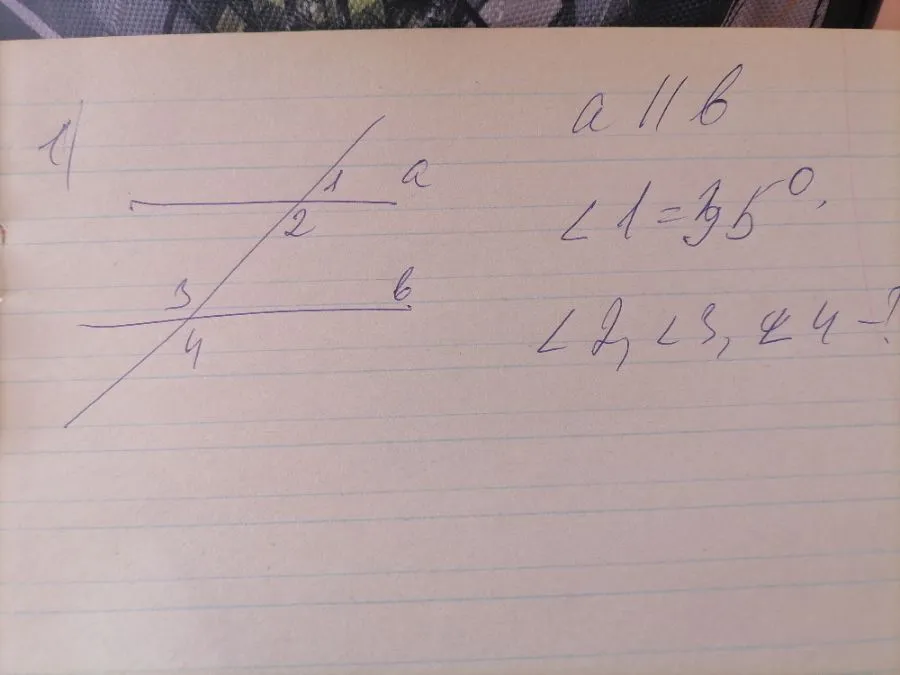 1)
1 a
2
3 в
4
a || в
∠1 = 5°.
∠2, ∠3, ∠4 - ?